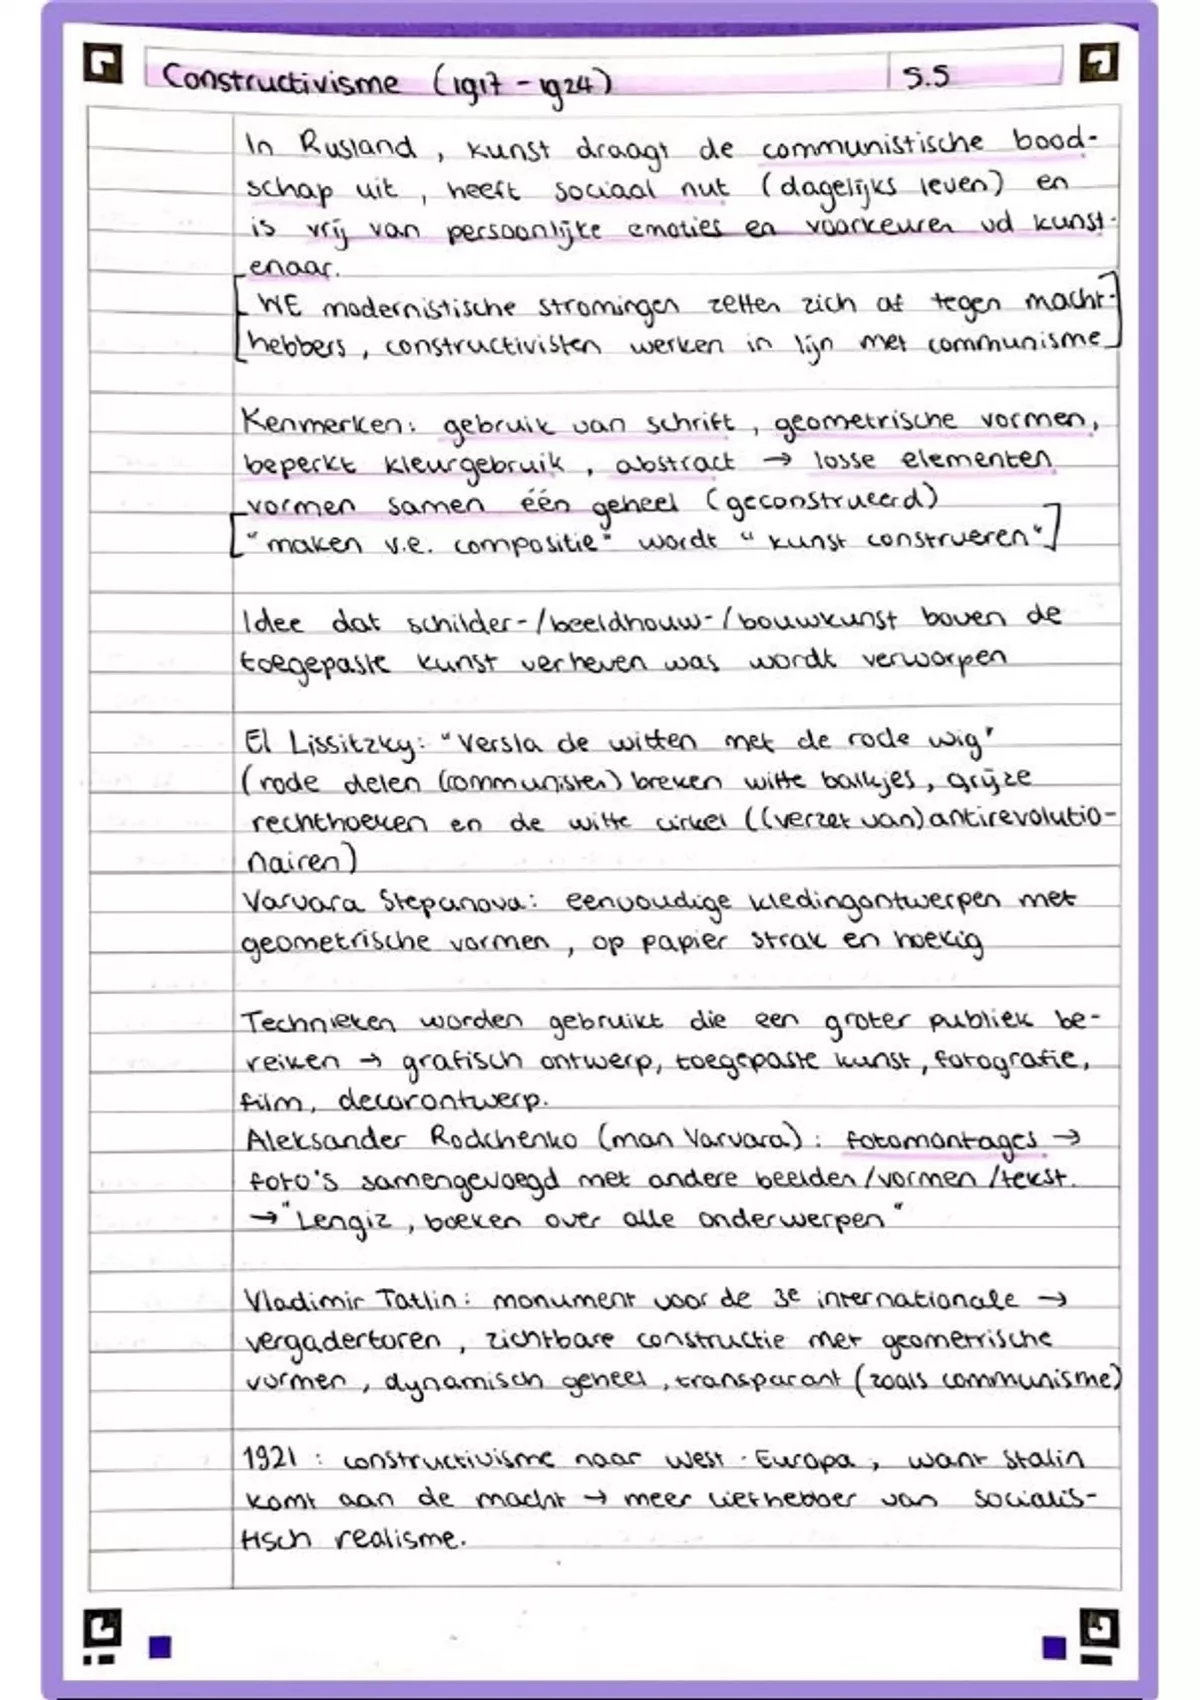 Constructivisme (1917 - 1924) 5.5
In Rusland, kunst draagt de communistische bood-
schap uit, heeft sociaal nut (dagelijks leven) en
is vrij van persoonlijke emoties en voorkeuren vd kunst-
enaar.
[WE modernistische stromingen zetten zich af tegen macht-
hebbers, constructivisten werken in lijn met communisme]
Kenmerken: gebruik van schrift, geometrische vormen,
beperkt kleurgebruik, abstract → losse elementen
vormen samen één geheel (geconstrueerd)
["maken v.e. compositie" wordt "kunst construeren"]
Idee dat schilder-/beeldhouw-/bouwkunst boven de
toegepaste kunst verheven was wordt verworpen
El Lissitzky: "Versla de witten met de rode wig"
(rode delen (communisten) breken witte balkjes, grijze
rechthoeken en de witte cirkel ((verzet van) antirevolutio-
nairen)
Varvara Stepanova: eenvoudige kledingontwerpen met
geometrische vormen, op papier strak en hoekig
Technieken worden gebruikt die een groter publiek be-
reiken → grafisch ontwerp, toegepaste kunst, fotografie,
film, decorontwerp.
Aleksander Rodchenko (man Varvara): fotomontages →
foto's samengevoegd met andere beelden/vormen/tekst.
→ "Lengiz, boeken over alle onderwerpen"
Vladimir Tatlin: monument voor de 3e internationale →
vergadertoren, zichtbare constructie met geometrische
vormen, dynamisch geheel, transparant (zoals communisme)
1921 : constructivisme naar West-Europa, want Stalin
komt aan de macht → meer liefhebber van socialis-
tisch realisme.